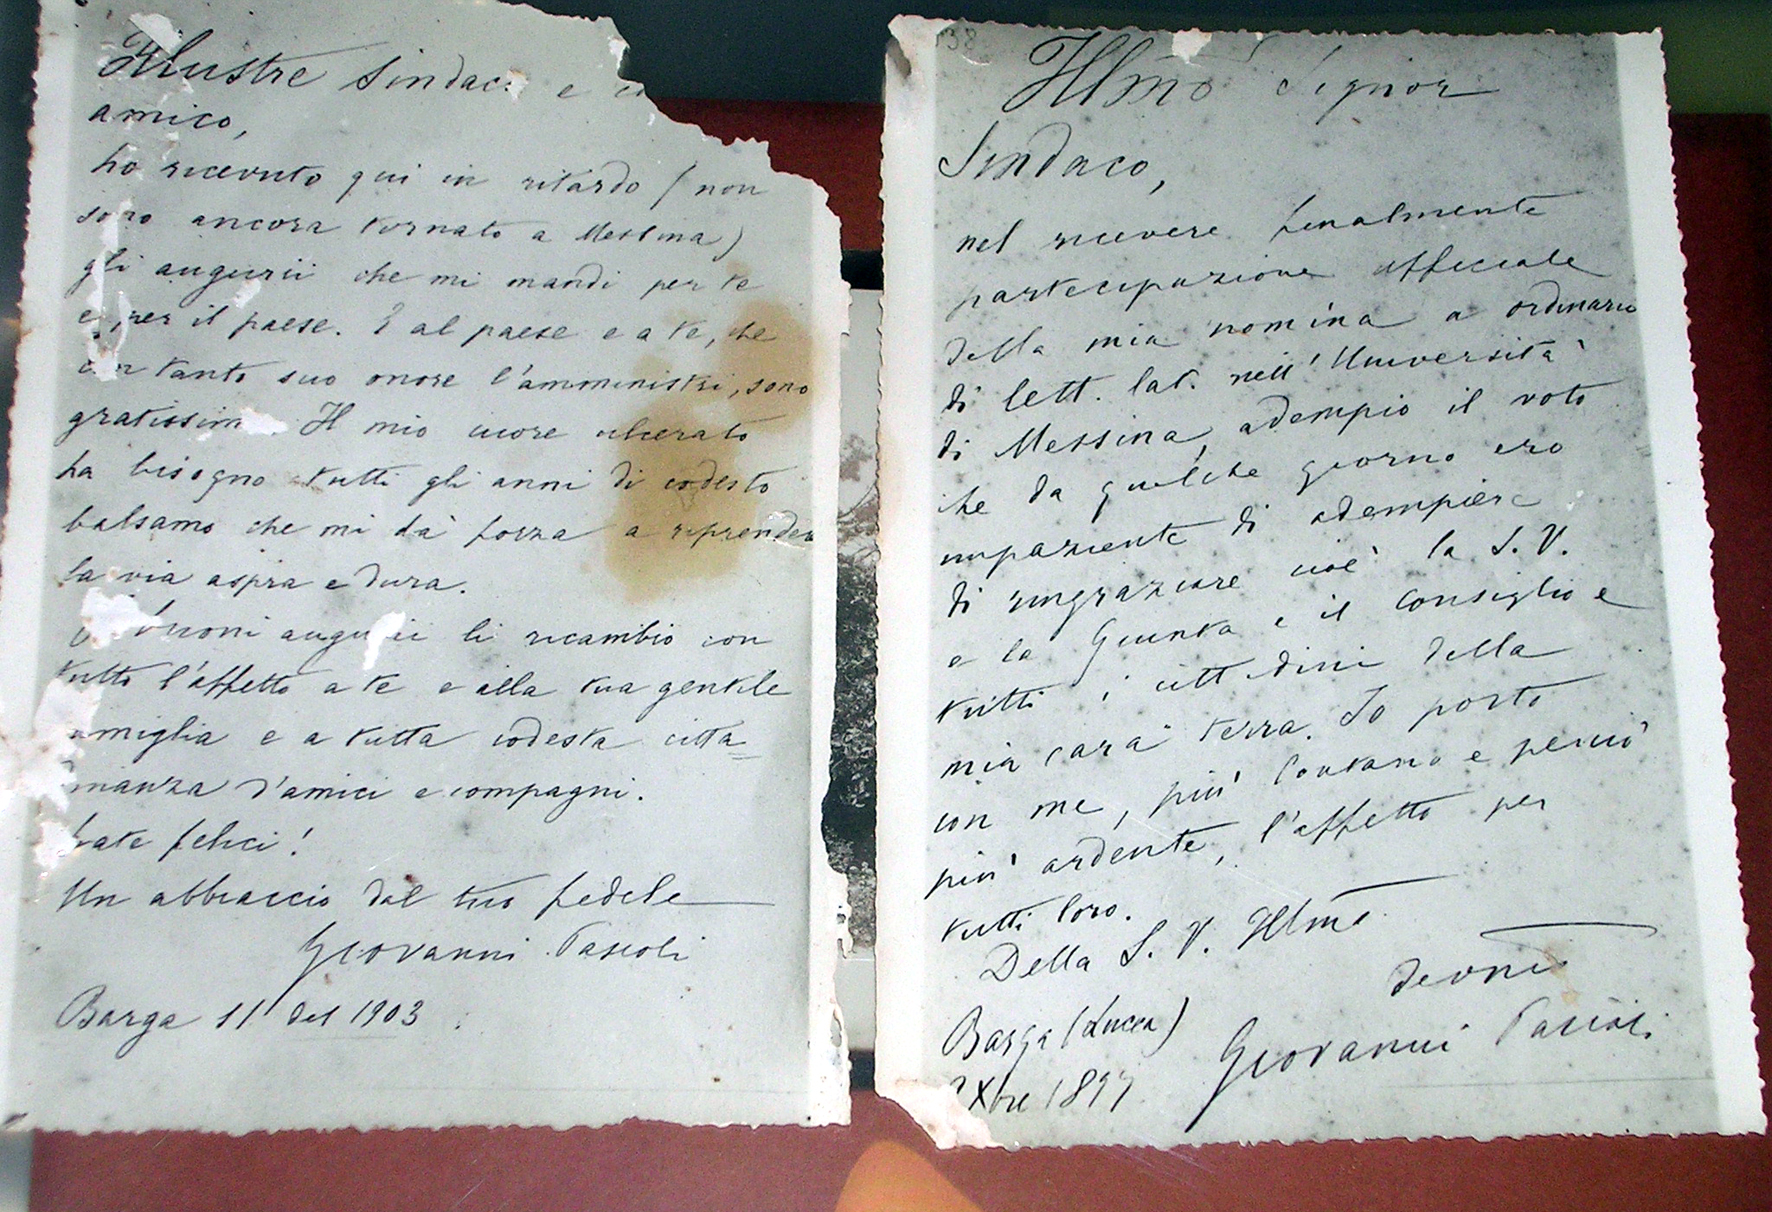 Illustre Sindaco e
amico,
ho ricevuto qui in ritardo (non
sono ancora tornato a Messina)
gli augurii che mi mandi per te
e per il paese. E al paese e a te, che
con tanto suo onore l'amministri, sono
gratissimo. Il mio cuore ulcerato
ha bisogno tutti gli anni di codesto
balsamo che mi dà forza a riprender
la via aspra e dura.
buoni augurii li ricambio con
tutto l'affetto a te e alla tua gentile
amiglia e a tutta codesta citta=
nanza d'amici e compagni.
fate felici!
Un abbraccio dal tuo fedele
Giovanni Pascoli
Barga 11 del 1903
38
Illmo Signor
Sindaco,
nel ricevere finalmente
partecipazione officiale
della mia nomina a ordinario
di lett. lat. nell'Università
di Messina, adempio il voto
che da qualche giorno ero
impaziente di adempiere
di ringraziare cioè la S. V.
e la Giunta e il Consiglio e
tutti i cittadini della
mia cara terra. Io porto
con me, più lontano e perciò
più ardente, l'affetto per
tutti loro.
Della S. V. Illma
devmo
Giovanni Pascoli
Barga (Lucca)
Xbre 1897